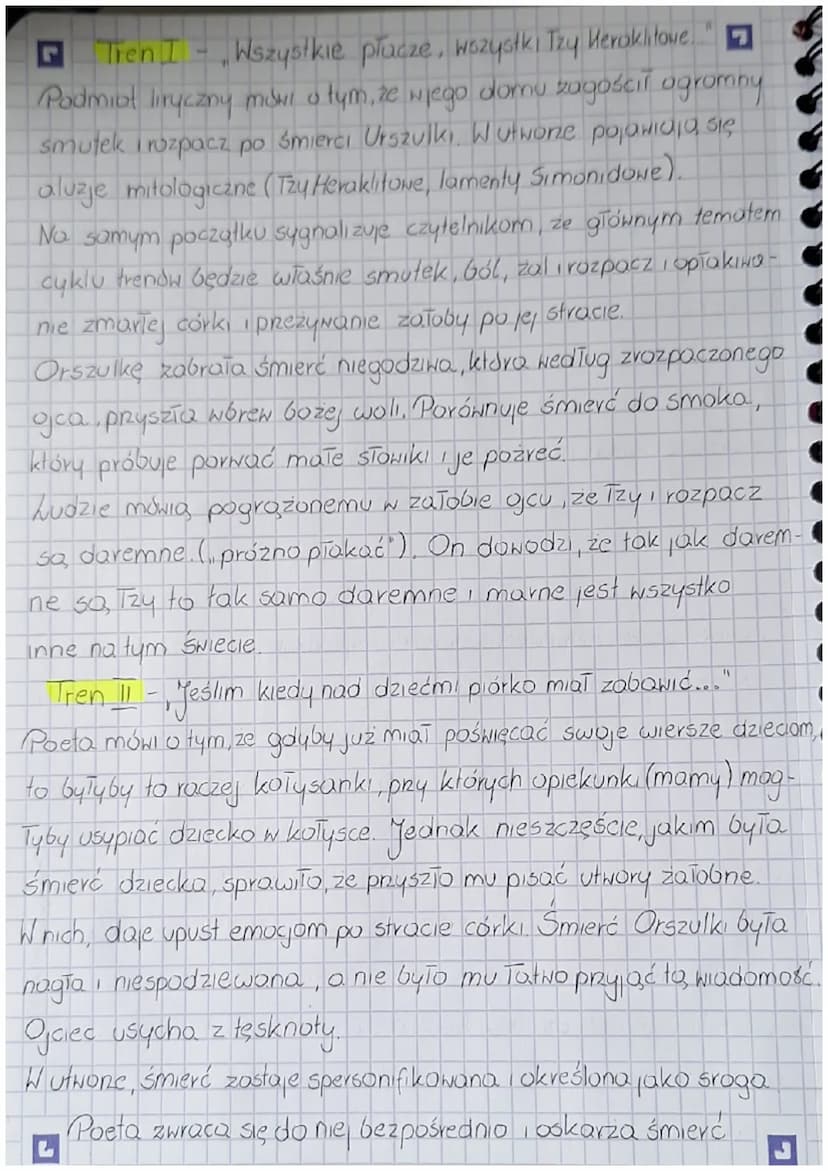 Tren I - „Wszystkie płacze, wszystki łzy Heraklitowe.."
Podmiot liryczny mówi o tym, że w jego domu zagościł ogromny
smutek i rozpacz po śmierci Urszulki. W utworze pojawiają się
aluzje mitologiczne (łzy Heraklitowe, lamenty Simonidowe).
Na samym początku sygnalizuje czytelnikom, że głównym tematem
cyklu trenów będzie właśnie smutek, ból, żal i rozpacz i opłakiwa-
nie zmarłej córki i przeżywanie żałoby po jej stracie.
Orszulkę zabrała śmierć niegodziwa, która według zrozpaczonego
ojca, przyszła wbrew bożej woli. Porównuje śmierć do smoka,
który próbuje porwać małe słowiki i je pożreć.
Ludzie mówią pogrążonemu w żałobie ojcu, że łzy i rozpacz
są daremne. („próżno płakać"). On dowodzi, że tak jak darem-
ne są łzy to tak samo daremne i marne jest wszystko
inne na tym świecie.
Tren II - „Jeślim kiedy nad dziećmi piórko miał zabawić..."
Poeta mówi o tym, że gdyby już miał poświęcać swoje wiersze dzieciom,
to byłyby to raczej kołysanki, przy których opiekunki (mamy) mog-
łyby usypiać dziecko w kołysce. Jednak nieszczęście, jakim była
śmierć dziecka, sprawiło, że przyszło mu pisać utwory żałobne.
W nich, daje upust emocjom po stracie córki. Śmierć Orszulki była
nagła i niespodziewana, a nie było mu łatwo przyjąć tą wiadomość.
Ojciec usycha z tęsknoty.
W utworze, śmierć zostaje spersonifikowana i określona jako sroga
Poeta zwraca się do niej bezpośrednio i oskarża śmierć